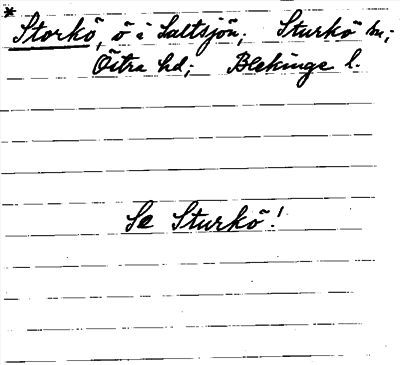 * Storkö, ö i Saltsjön; Sturkö sn;
Östra hd; Blekinge l.
Se Sturkö!